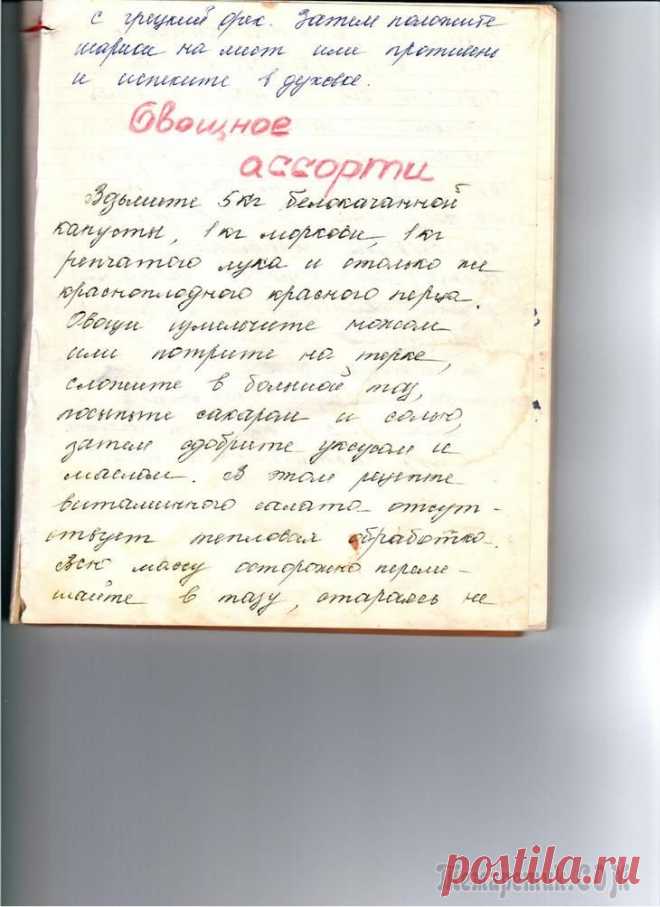 с грецкий орех. Затем положите
шарики на лист или противень
и испеките в духовке.
Овощное
ассорти
Возьмите 5 кг белокачанной
капусты, 1 кг моркови, 1 кг
репчатого лука и столько же
красноплодного красного перца.
Овощи измельчите ножом
или потрите на терке,
сложите в большой таз,
посыпьте сахаром и солью,
затем сдобрите уксусом и
маслом. В этом рецепте
витаминного салата отсут-
ствует тепловая обработка.
Всю массу осторожно переме-
шайте в тазу, стараясь не
postila.ru